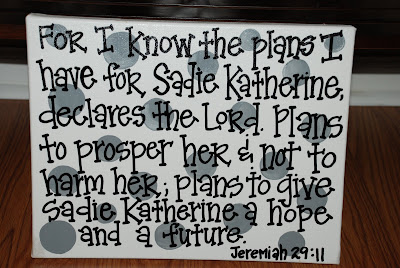 For I know the plans I
have for Sadie Katherine,
declares the Lord. Plans
to prosper her, & not to
harm her; plans to give
Sadie Katherine a hope
and a future.
Jeremiah 29:11